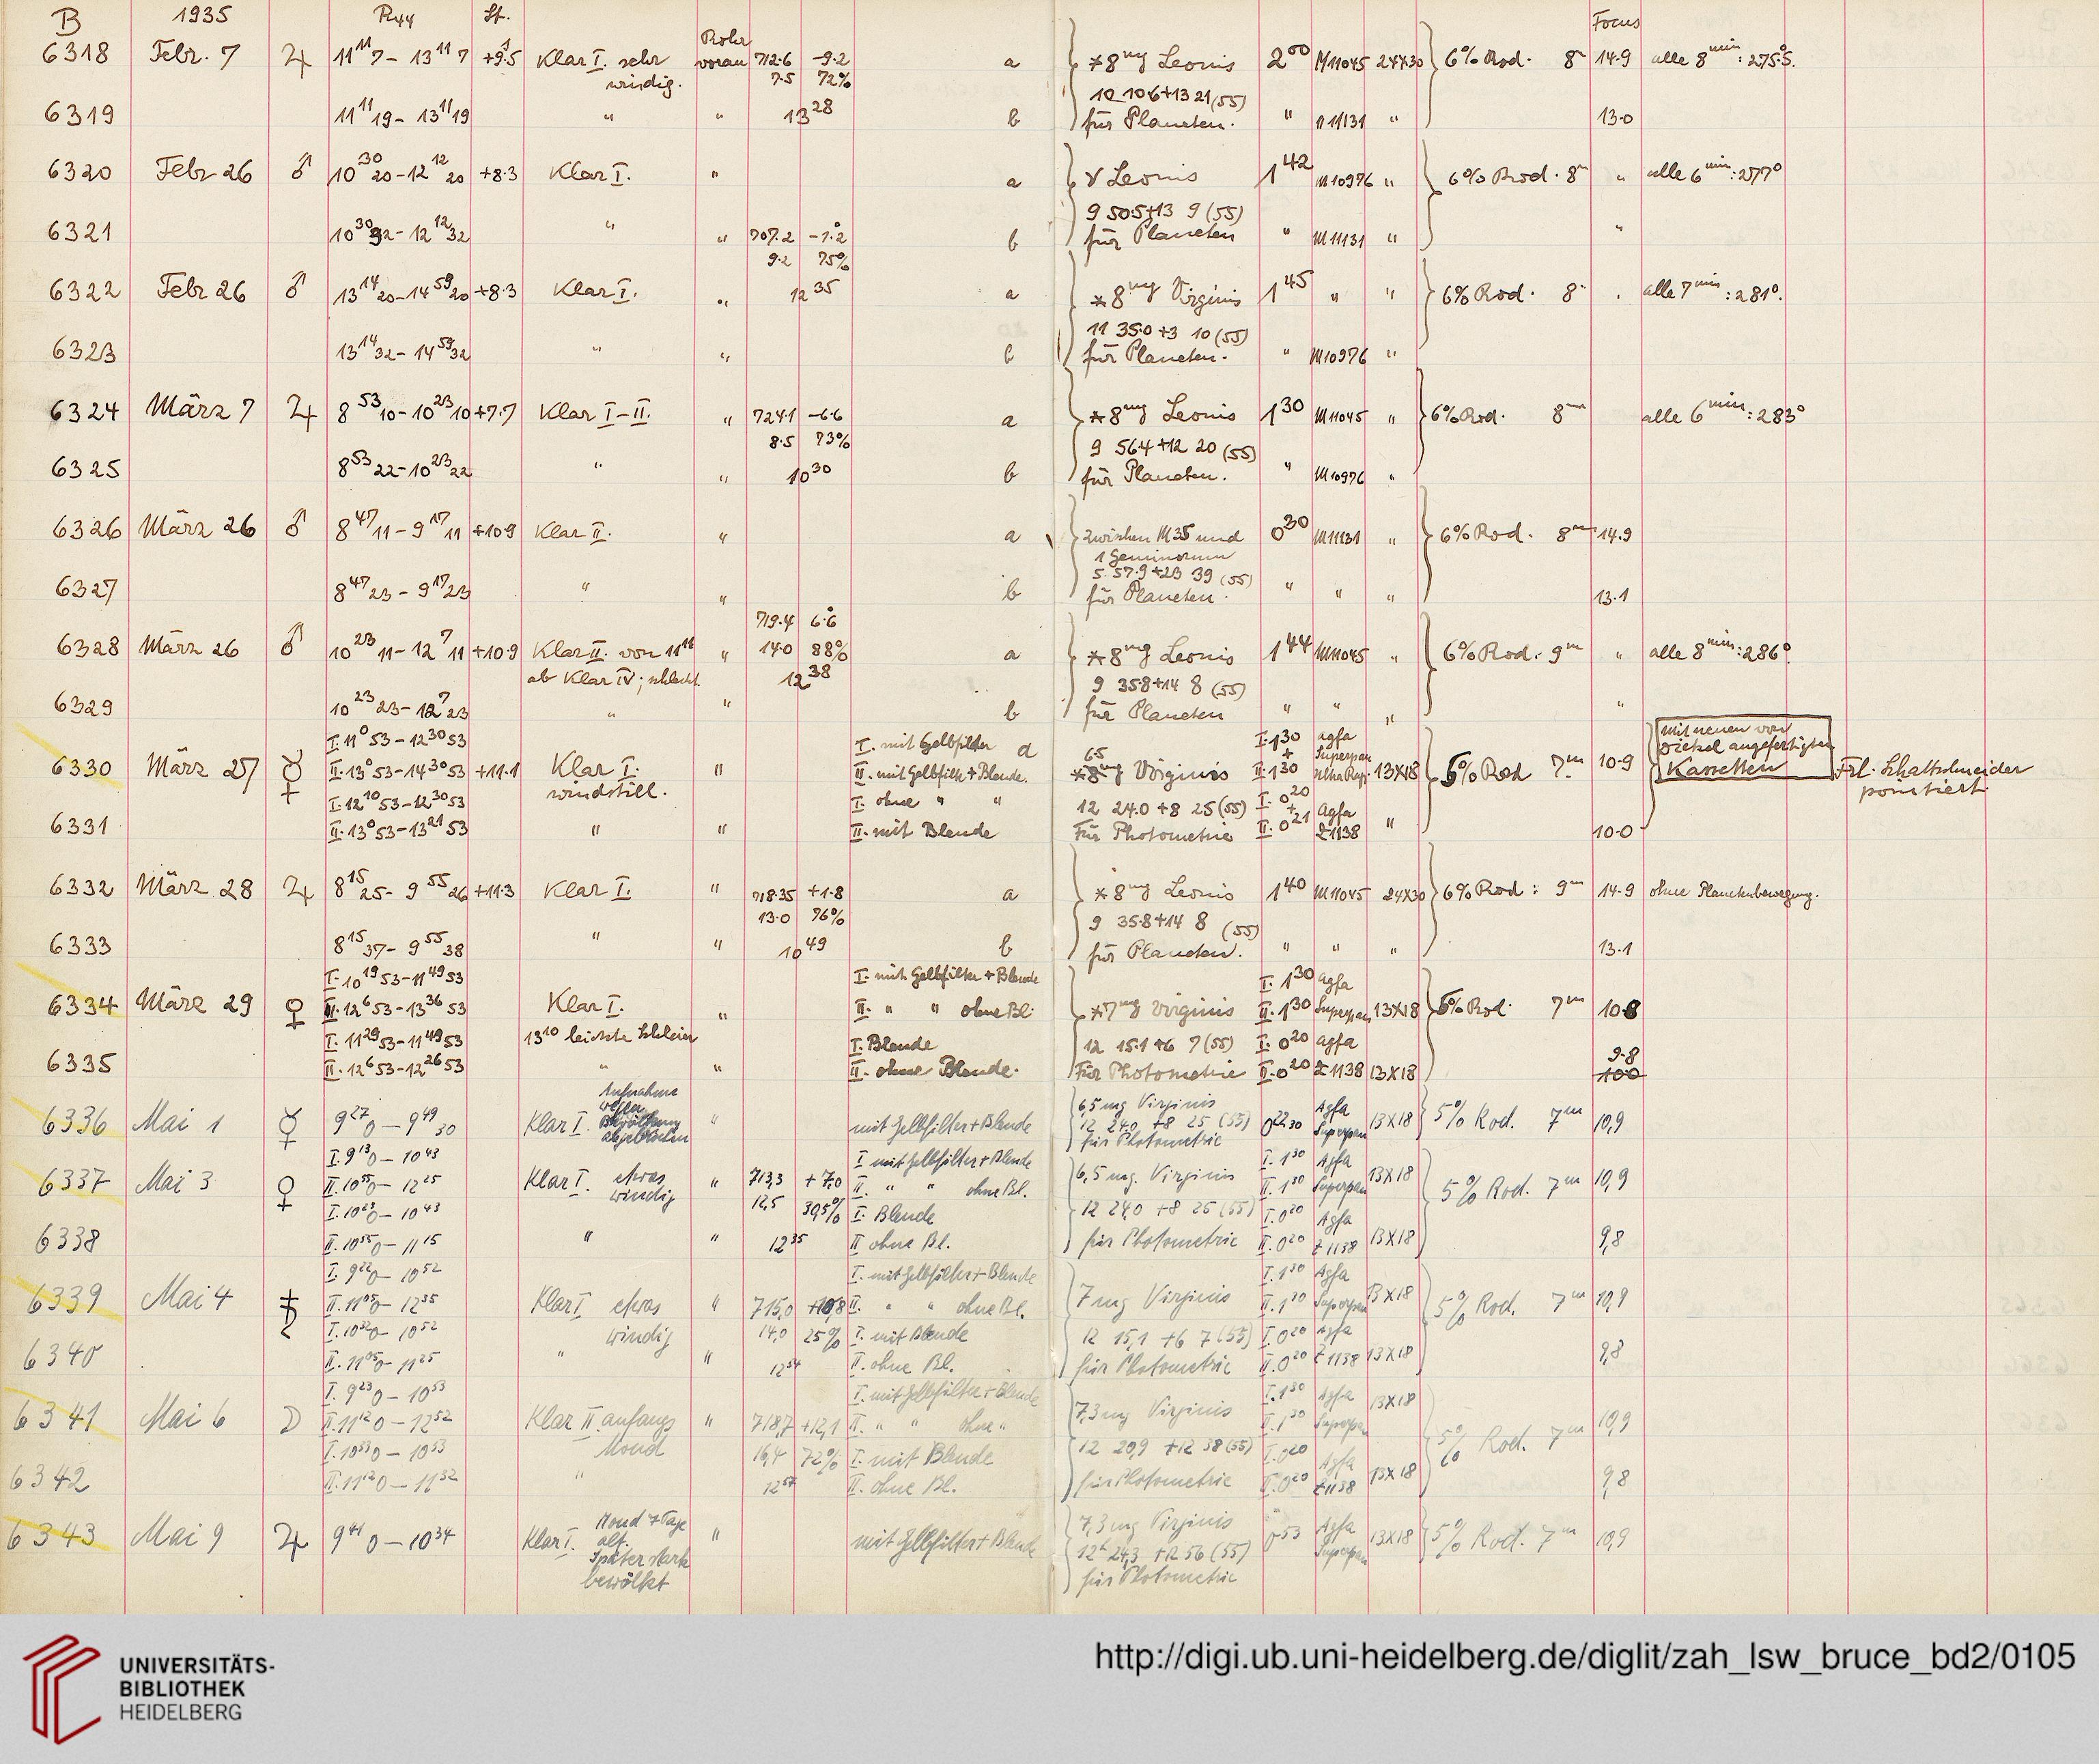 B 1935 R44 St. Focus
6318 Febr. 7 ♃ 11 11 7 – 13 11 7 +9.5 Klar I. sehr Rohr voran 712.6 -9.2 a *8mg Leonis 2 00 M11045 24x30 6% Rod. 8m 14.9 alle 8 min: 275.5.
windig. 7.5 72% 10 10.6+13 21 (55)
6319 11 11 19 – 13 11 19 " " 13 28 b für Planeten. " M11131 " 13.0
6320 Febr 26 ♂ 10 30 20 – 12 12 20 +8.3 Klar I. " a γ Leonis 1 42 M10976 " 6% Rod. 8m " alle 6 min: 277°
9 50.5+13 9 (55)
6321 10 30 32 – 12 12 32 " " 707.2 -1.2 b für Planeten " M11131 " "
9.2 75%
6322 Febr 26 ♂ 13 14 20 – 14 59 20 +8.3 Klar I. " 12 35 a *8mg Virginis 1 45 " " 6% Rod. 8m alle 7 min: 281°.
11 35.0 +3 10 (55)
6323 13 14 32 – 14 59 32 " " b für Planeten. " M10976 "
6324 März 7 ♃ 8 53 10 – 10 23 10 +7.7 Klar I–II. " 724.1 -6.6 a *8mg Leonis 1 30 M11045 " 6% Rod. 8m alle 6 min: 283°
8.5 73% 9 56.4 +12 20 (55)
6325 8 53 22 – 10 23 22 " " 10 30 b für Planeten. " M10976 "
6326 März 26 ♂ 8 47 11 – 9 17 11 +10.9 Klar II. " a zwischen M35 und 0 30 M11131 " 6% Rod. 8m 14.9
1 Geminorum
5 57.9 +23 39 (55)
6327 8 47 23 – 9 17 23 " " b für Planeten. " " " 13.1
719.4 6.6
6328 März 26 ♂ 10 23 11 – 12 7 11 +10.9 Klar II. von 11 " 14.0 88% a *8mg Leonis 1 44 M11045 " 6% Rod. 9m " alle 8 min: 286°
ab Klar IV; schlecht 12 38 9 35.8+14 8 (55)
6329 10 23 23 – 12 7 23 " " b für Planeten " " " "
I. 11 0 53 – 12 30 53 I. mit Gelbfilter a 6.5 I. 1 30 Agfa mit neuen von
6330 März 27 ☿ II. 13 0 53 – 14 30 53 +11.1 Klar I. " II. mit Gelbfilt + Blende. *8mg Virginis II. 1 30 Superpan 13x18 6% Rod 7m 10.9 angefertigten Kassetten Frl. Schattschneider
I. 12 10 53 – 12 30 53 windstill. I. ohne " " 12 24.0 +8 25 (55) I. 0 20 Agfa pointiert
6331 II. 13 0 53 – 13 21 53 " " II. mit Blende Für Photometrie II. 0 21 Z1138 " 10.0
6332 März 28 ♃ 8 15 25 – 9 55 26 +11.3 Klar I. " 718.35 +1.8 a *8mg Leonis 1 40 M11045 24x30 6% Rod: 9m 14.9 ohne Planetenbewegung.
13.0 76% 9 35.8+14 8 (55)
6333 8 15 37 – 9 55 38 " " 10 49 b für Planeten. " " " 13.1
I. 10 19 53 – 11 49 53 I. mit Gelbfilter + Blende I. 1 30 Agfa
6334 März 29 ♀ II. 12 6 53 – 13 36 53 Klar I. " II. " " ohne Bl. *7mg Virginis II. 1 30 Superpan 13x18 6% Rod. 7m 10.8
I. 11 29 53 – 11 49 53 13 10 leichte Schleier I. Blende 12 15.1 +6 7 (55) I. 0 20 Agfa 9.8
6335 II. 12 6 53 – 12 26 53 " " II. ohne Blende. Für Photometrie II. 0 20 Z1138 13x18 10.0
6336 Mai 1 ☿ 9 27 0 – 9 49 30 Klar I. Aufnahme wegen Bewölkung abgebrochen " mit Gelbfilter + Blende 6,5 mg Virginis 0 22 30 Agfa Superpan 13x18 5% Rod. 7m 10,9
12 24.0 +8 25 (55)
für Photometrie
I. 9 13 0 – 10 43 I mit Gelbfilter + Blende I. 1 30 Agfa
6337 Mai 3 ♀ II. 10 55 0 – 12 25 Klar I. etwas windig " 713,3 +7,0 II. " " ohne Bl. 6,5 mg. Virginis II. 1 30 Superpan 13x18 5% Rod. 7m 10,9
I. 10 23 0 – 10 43 12,5 39,5% I. Blende 12 24,0 +8 25 (55) I. 0 20 Agfa
6338 II. 10 55 0 – 11 15 " " 12 35 II ohne Bl. für Photometrie II. 0 20 Z1138 13x18 9,8
I. 9 22 0 – 10 52 I. mit Gelbfilter + Blende I. 1 30 Agfa
6339 Mai 4 ♄ II. 11 05 0 – 12 35 Klar I etwas " 715,0 +10,8 II. " " ohne Bl. 7 mg Virginis II. 1 30 Superpan 13x18 5% Rod. 7m 10,9
I. 10 32 0 – 10 52 windig 14,0 25% I. mit Blende 12 15,1 +6 7 (55) I. 0 20 Agfa
6340 II. 11 05 0 – 11 25 " " 12 54 II. ohne Bl. für Photometrie II. 0 20 Z1138 13x18 9,8
I. 9 23 0 – 10 53 I. mit Gelbfilter + Blende I. 1 30 Agfa 13x18
6341 Mai 6 ☽ II. 11 12 0 – 12 52 Klar II anfangs " 718,7 +12,1 II. " " ohne " 7,3 mg Virginis II. 1 30 Superpan 5% Rod. 7m 10,9
I. 10 33 0 – 10 53 Mond 16,4 72% I. mit Blende 12 20,9 +12 38 (55) I. 0 20 Agfa
6342 II. 11 12 0 – 11 32 " 12 57 II. ohne Bl. für Photometrie II. 0 20 Z1138 13x18 9,8
6343 Mai 9 ♃ 9 41 0 – 10 34 Klar I. Mond 7 Tage alt. " mit Gelbfilter + Blende 7,3 mg Virginis 0 53 Agfa Superpan 13x18 5% Rod. 7m 10,9
Später stark 12 24,3 +12 56 (55)
bewölkt für Photometrie
UNIVERSITÄTS-
BIBLIOTHEK
HEIDELBERG
http://digi.ub.uni-heidelberg.de/diglit/zah_lsw_bruce_bd2/0105